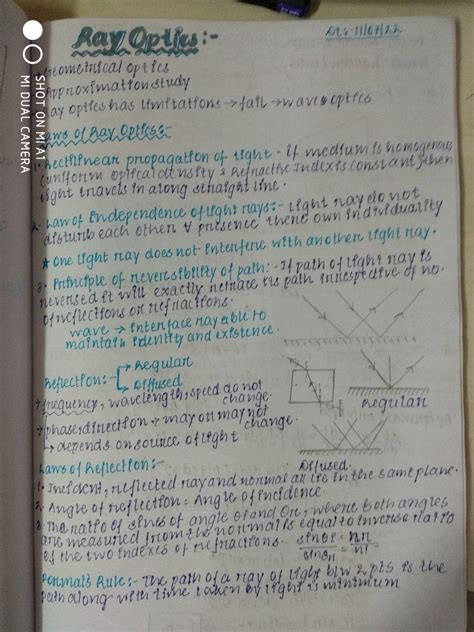 Ray Optics:-
Dt:- 11/07/22
Geometrical optics
Approximation study
Ray optics has limitations → fail → wave optics
Laws of Ray Optics:-
1. Rectilinear propagation of light - if medium is homogeneous
(uniform optical density & Refractive Index is constant) then
light travels in along straight line.
2. Law of independence of light rays:- light ray do not
disturb each other & presence there own individuality
* One light ray does not interfere with another light ray.
3. Principle of reversibility of path:- If path of light ray is
reversed it will exactly retrace its path irrespective of no.
of reflections or refractions.
wave → interface ray able to
maintain identity and existence.
Reflection:- → Regular
→ Diffused
→ frequency, wavelength, speed do not
change.
→ phase, direction → may or may not
change.
→ depends on source of light
Regular
Diffused
Laws of Reflection:-
1. Incident, reflected ray and normal all lie in the same plane.
2. Angle of reflection = Angle of incidence.
3. The ratio of sines of angle θi and θr, where both angles
are measured from the normal is equal to inverse ratio
of the two indexes of refractions.
Fermats Rule:- The path of a ray of light b/w 2 pts is the
path along with time taken by light is minimum
SHOT ON MI A1
MI DUAL CAMERA